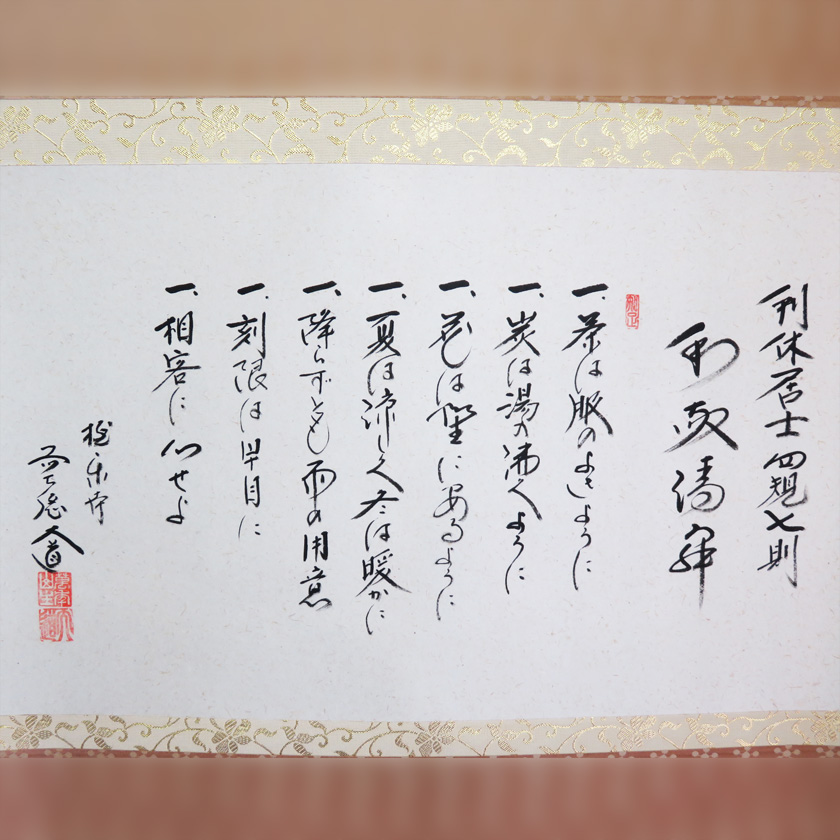 利休居士四規七則
和敬清寂
一、茶は服のよきように
一、炭は湯の沸くように
一、花は野にあるように
一、夏は涼しく冬は暖かに
一、降らずとも雨の用意
一、刻限は早目に
一、相客に心せよ
大道